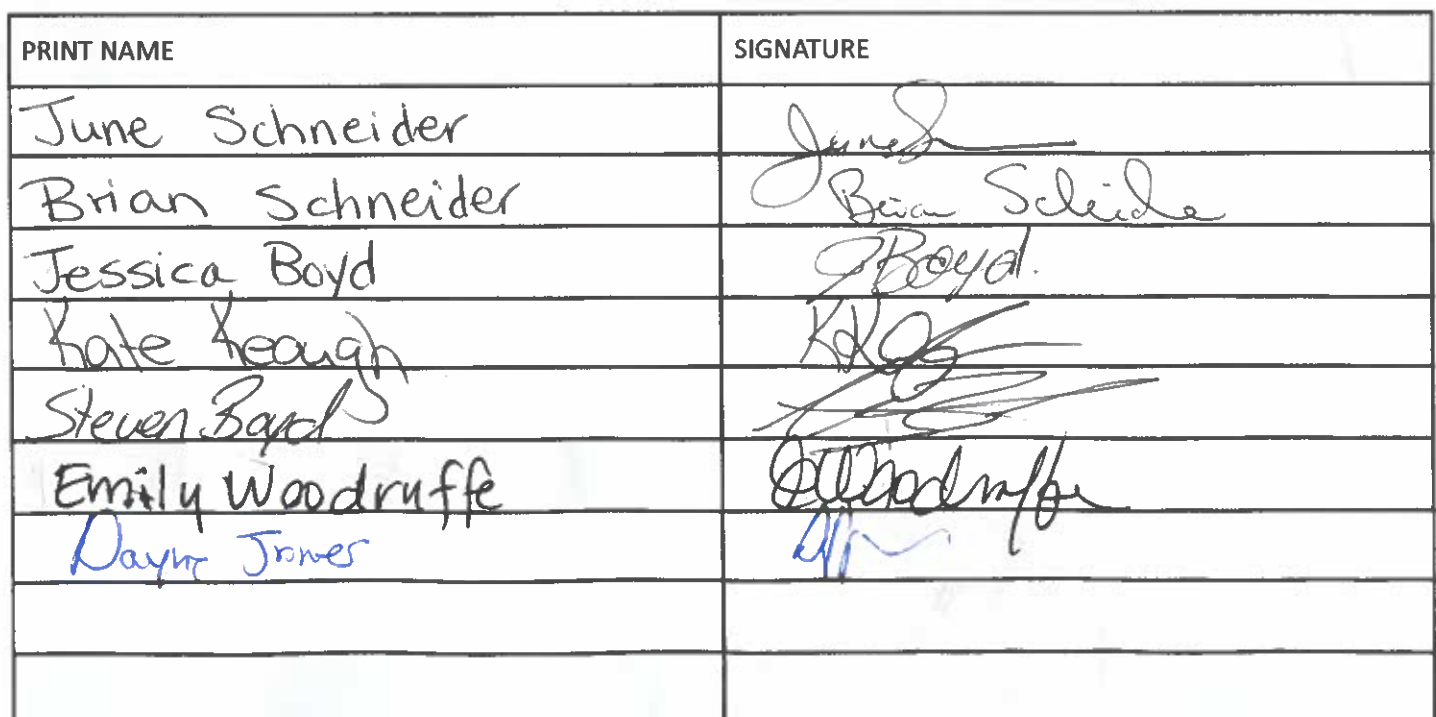 PRINT NAME SIGNATURE
June Schneider June S
Brian Schneider Brian Schneider
Jessica Boyd JBoyd.
Kate Keough
Steven Boyd
Emily Woodruffe EWoodruffe
Dayne